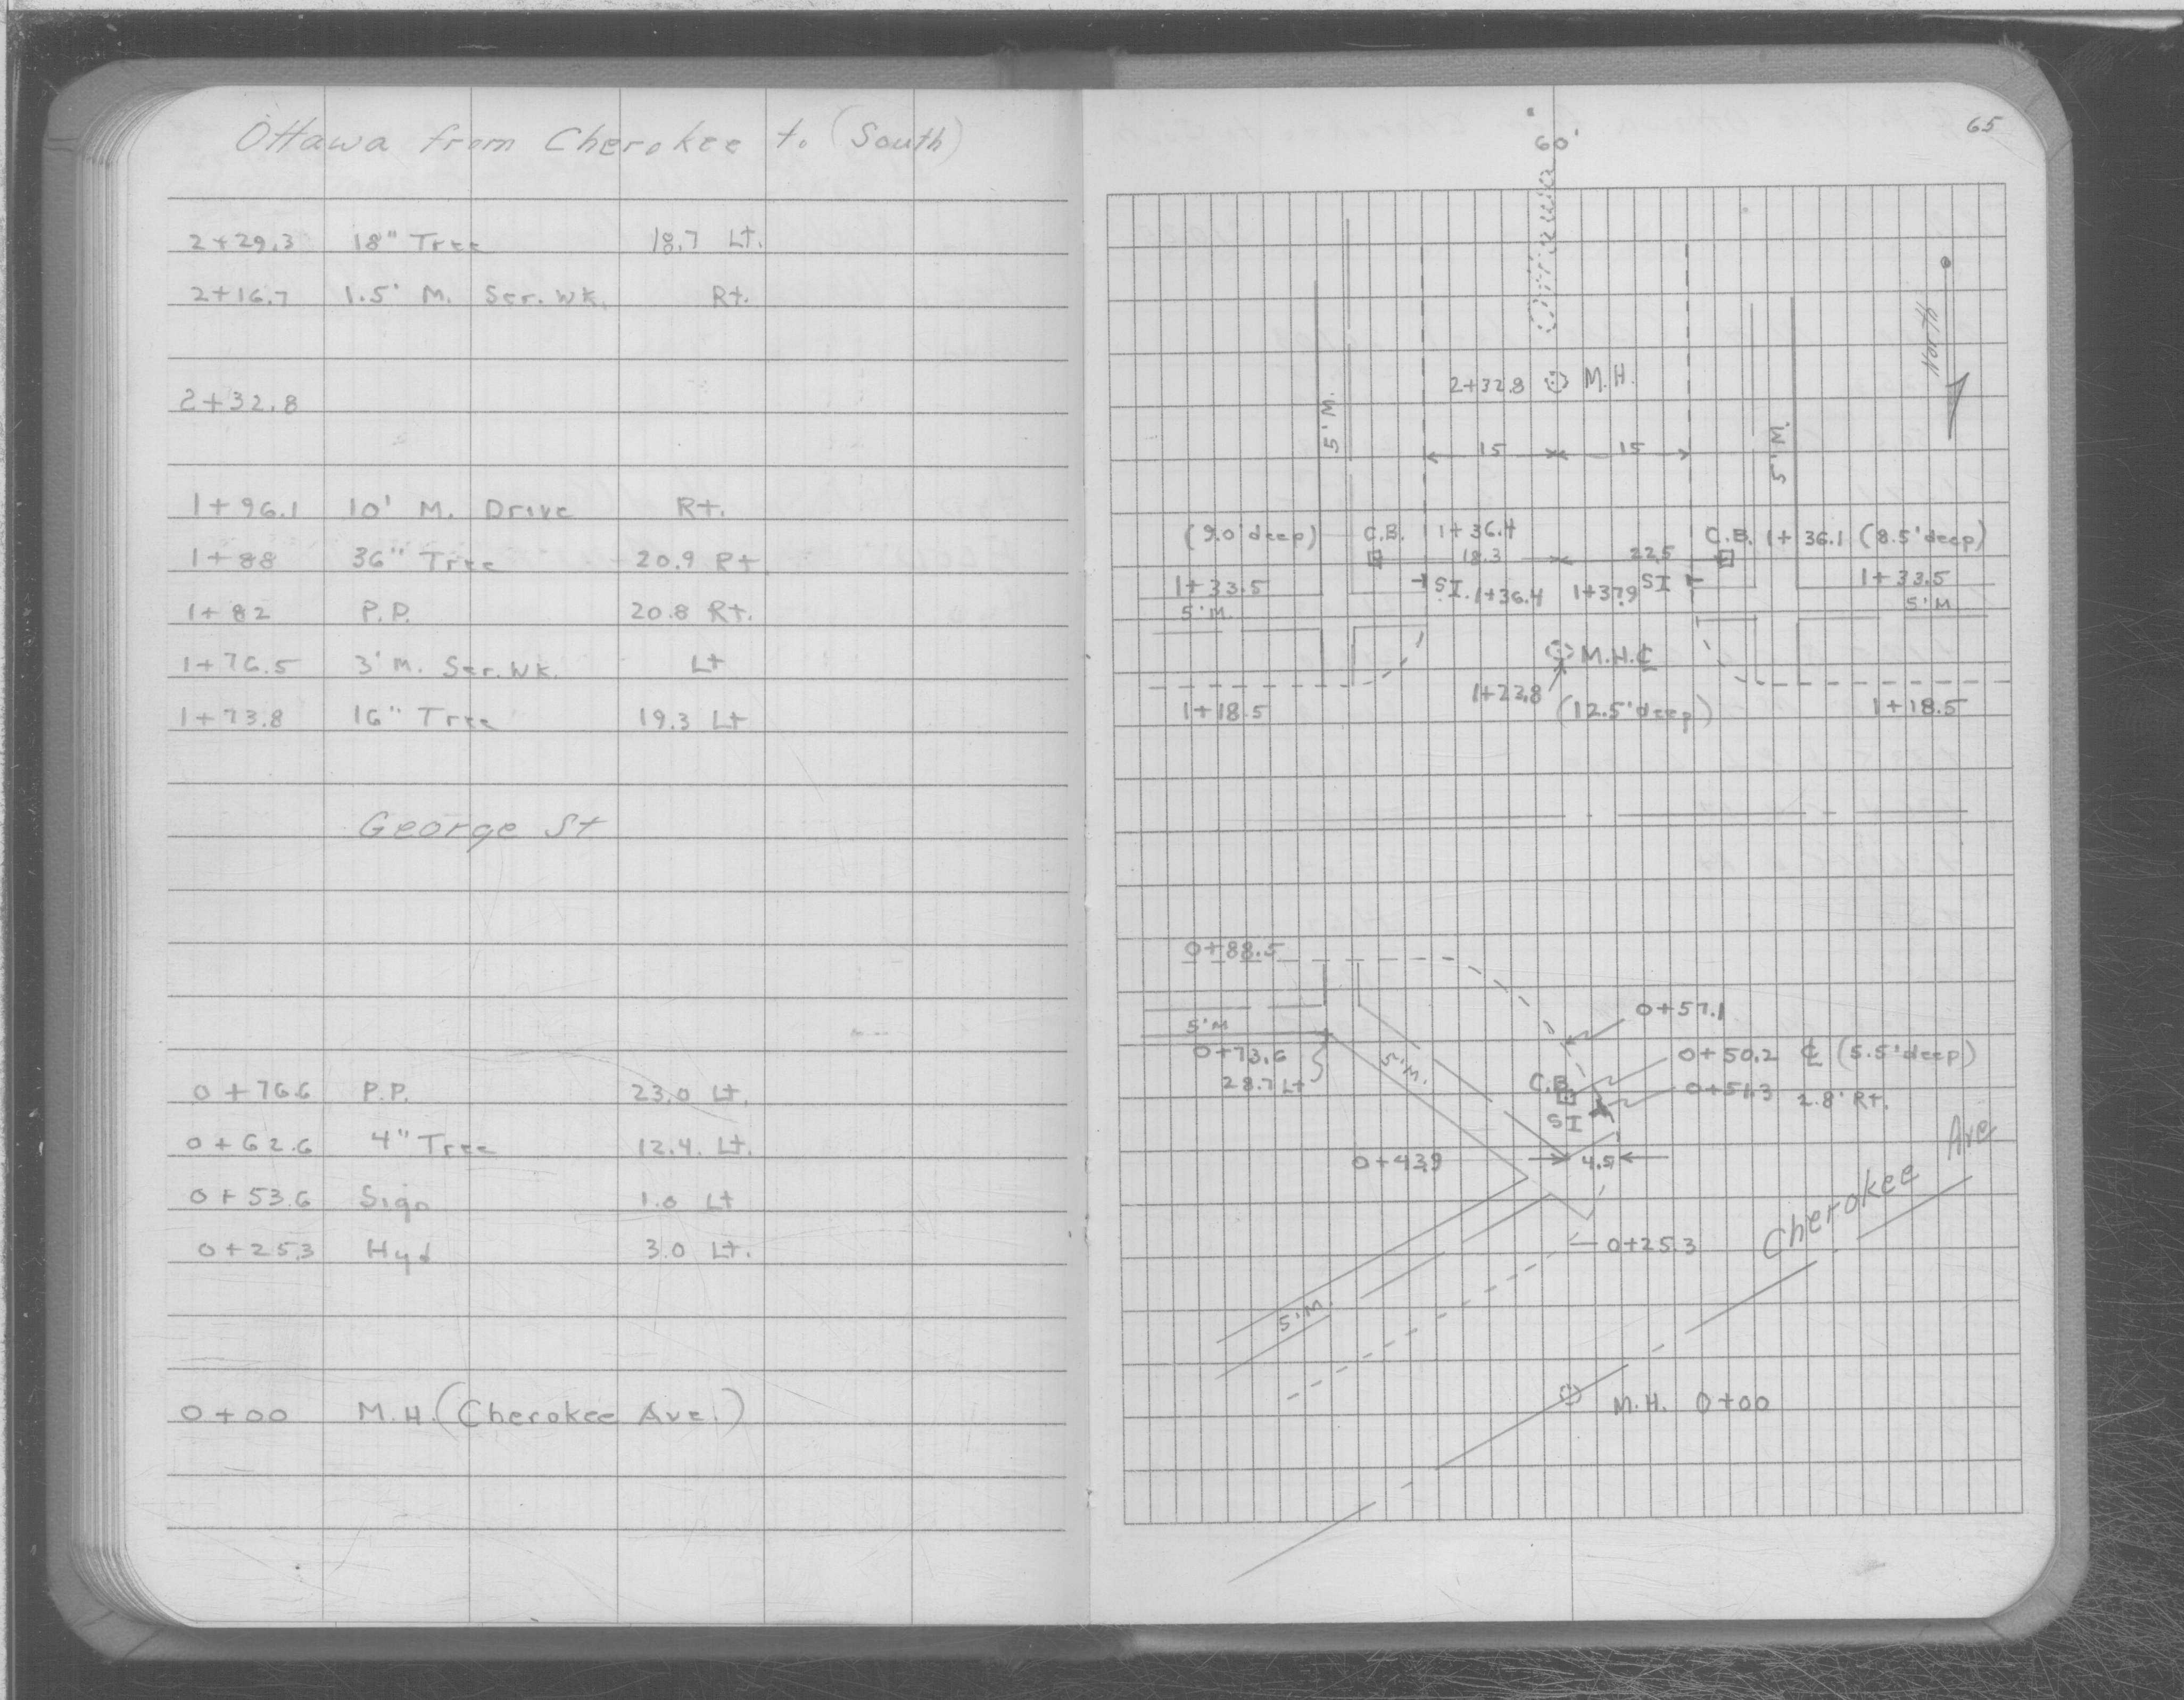 Ottawa from Cherokee to (South)
2+29.3 18" Tree 18.7 Lt.
2+16.7 1.5' M. Ser. Wk. Rt.
2+32.8
1+96.1 10' M. Drive Rt.
1+88 36" Tree 20.9 Rt
1+82 P.P. 20.8 Rt.
1+76.5 3' M. Ser. Wk. Lt
1+73.8 16" Tree 19.3 Lt
George St
0+76.6 P.P. 23.0 Lt.
0+62.6 4" Tree 12.4 Lt.
0+53.6 Sign 1.0 Lt
0+25.3 Hyd 3.0 Lt.
0+00 M.H. (Cherokee Ave.)
65
60'
Ottawa
North
2+32.8 M.H.
5' M.
5' M.
15 15
(9.0' deep) C.B. 1+36.4 C.B. 1+36.1 (8.5' deep)
18.3 22.5
1+33.5 SI. 1+36.4 1+37.9 SI 1+33.5
5' M. 5' M
M.H. ℄
1+23.8
1+18.5 (12.5' deep) 1+18.5
0+88.5
0+57.1
5' M
0+73.6 5' M. 0+50.2 ℄ (5.5' deep)
28.7 Lt C.B. 0+51.3 2.8' Rt.
SI
0+43.9 4.5
Cherokee Ave
0+25.3
5' M.
M.H. 0+00